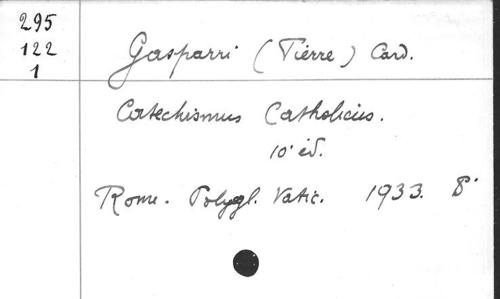 295
122
1
Gasparri (Pierre) Card.
Catechismus Catholicus.
10° éd.
Rome. Polygl. Vatic. 1933. 8°